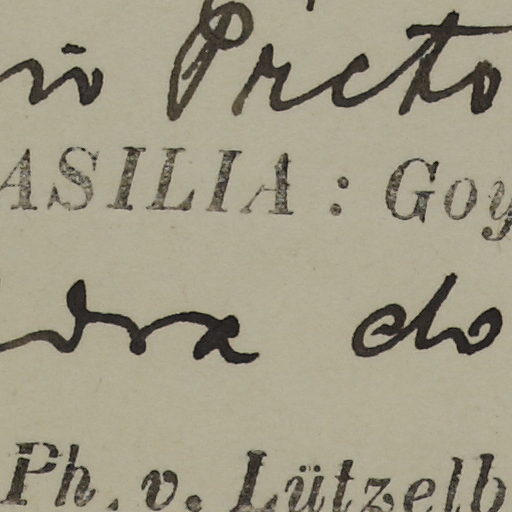 io Preto
ASILIA : Goy
dra do
Ph. v. Lützelb